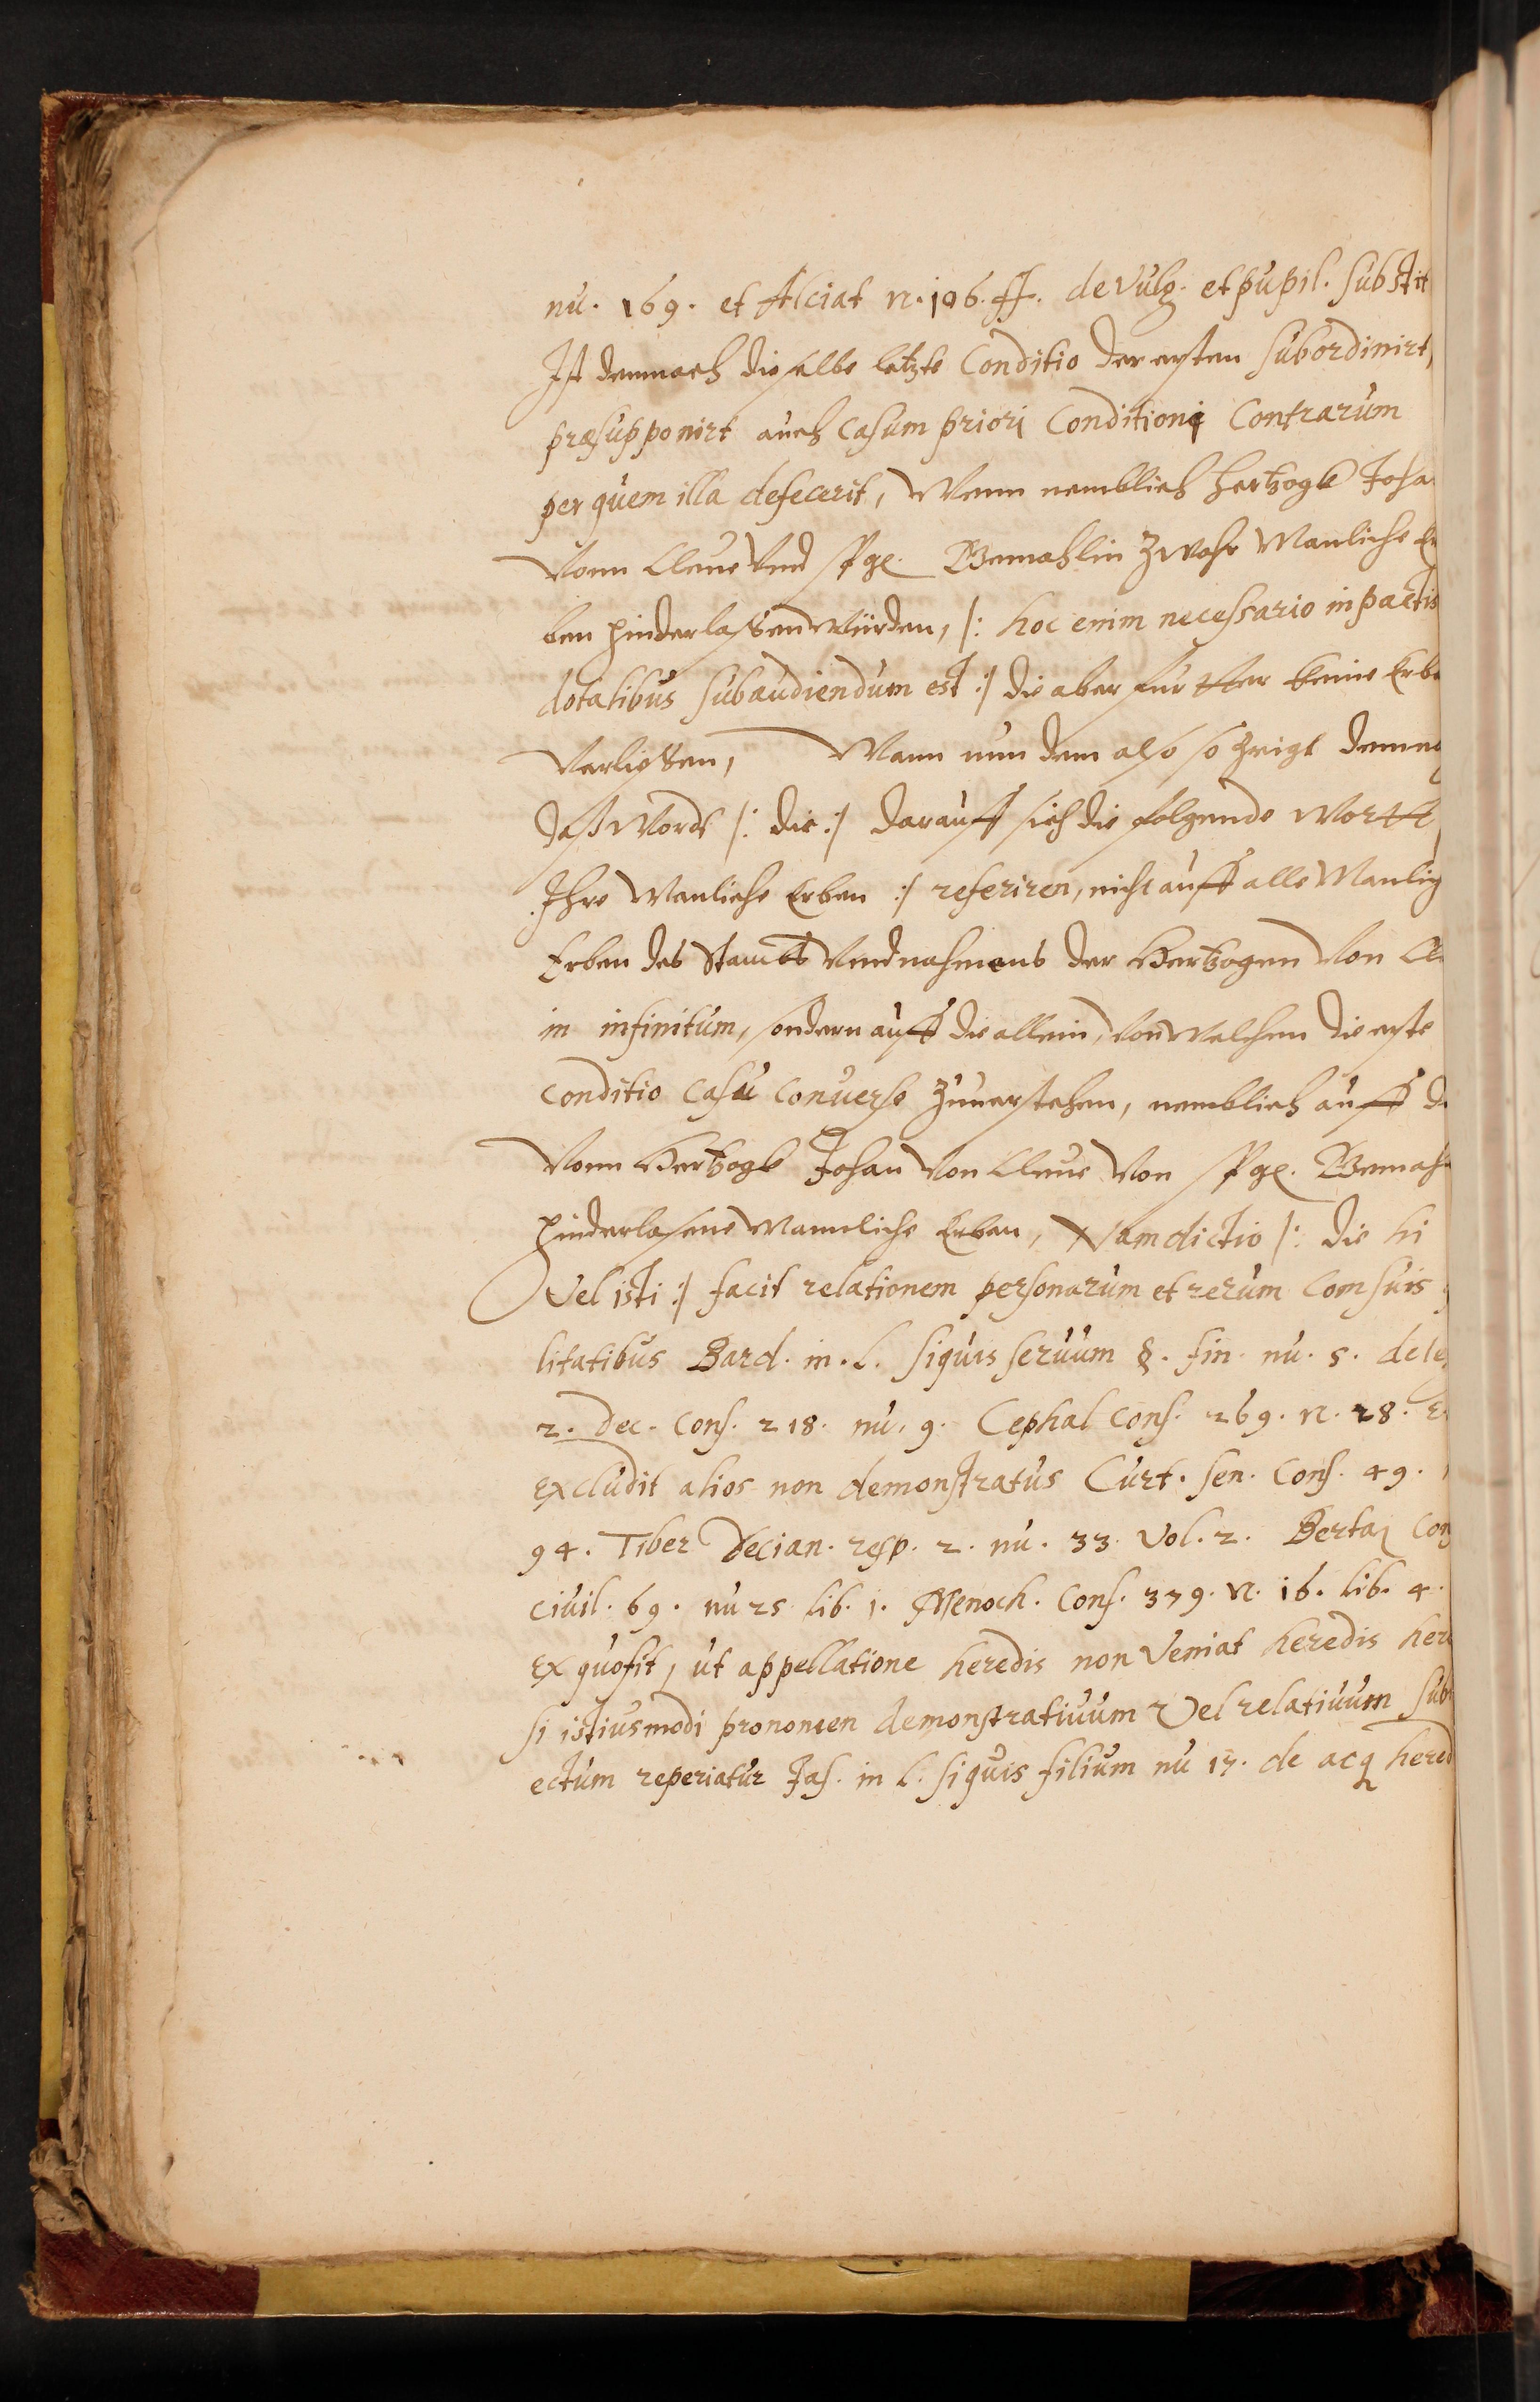 nu. 169. et Alciat n. 106. ff. de Vulg. et pupil. substit
Ist demnach dieselbe letzte Conditio der ersten subordinirt,
præsupponirt auch casum priori Conditioni Contrarum
per quem illa defecerit, Wenn nemblich hertzogk Joha
Vonn Cleue Vnd Gemahlin zwahr Manliche Er
ben hinderlassen würden, /: hoc enim necessario in pactis
dotalibus subaudiendum est :/ die aber fürtter keine Erbe
Verliessen, Wann nun dem also so zeigt
daß Wordt /: die :/ darauff sich die folgende Wortt
Ihre Manliche Erben :/ referiren, nicht auff alle Manlig
Erben des Stambs Vnd nahmens der Hertzogen Von Cle
in infinitum, sondern auff die allein, Von Welchen die erste
conditio casu conuerso zuuerstehen, nemblich auff d
Vonn Hertzogk Johan Von Cleue Von Gemah
hinderlasene Mannliche Erben, Nam dictio /: die hi
Vel isti :/ facit relationem personarum et rerum com suis
litatibus Bard. in. l. siquis seruum §. fin. nu. 5. de le
2. Dec. Cons. 218. nu. 9. Cephal cons. 269. n. 28. E
Excludit alios non demonstratus Curt. sen. Cons. 49.
94. Tiber Decian. resp. 2. nu. 33. Vol. 2. Bertaz Con
ciuil. 69. nu 25 lib. 1. Menoch. Cons. 379. n. 16. lib. 4.
Ex quo fit, ut appellatione heredis non Veniat heredis here
si istiusmodi pronomen demonstratiuum Vel relatiuum sub
ectum reperiatur Jas. in l. siquis filium nu 17. de acq hered